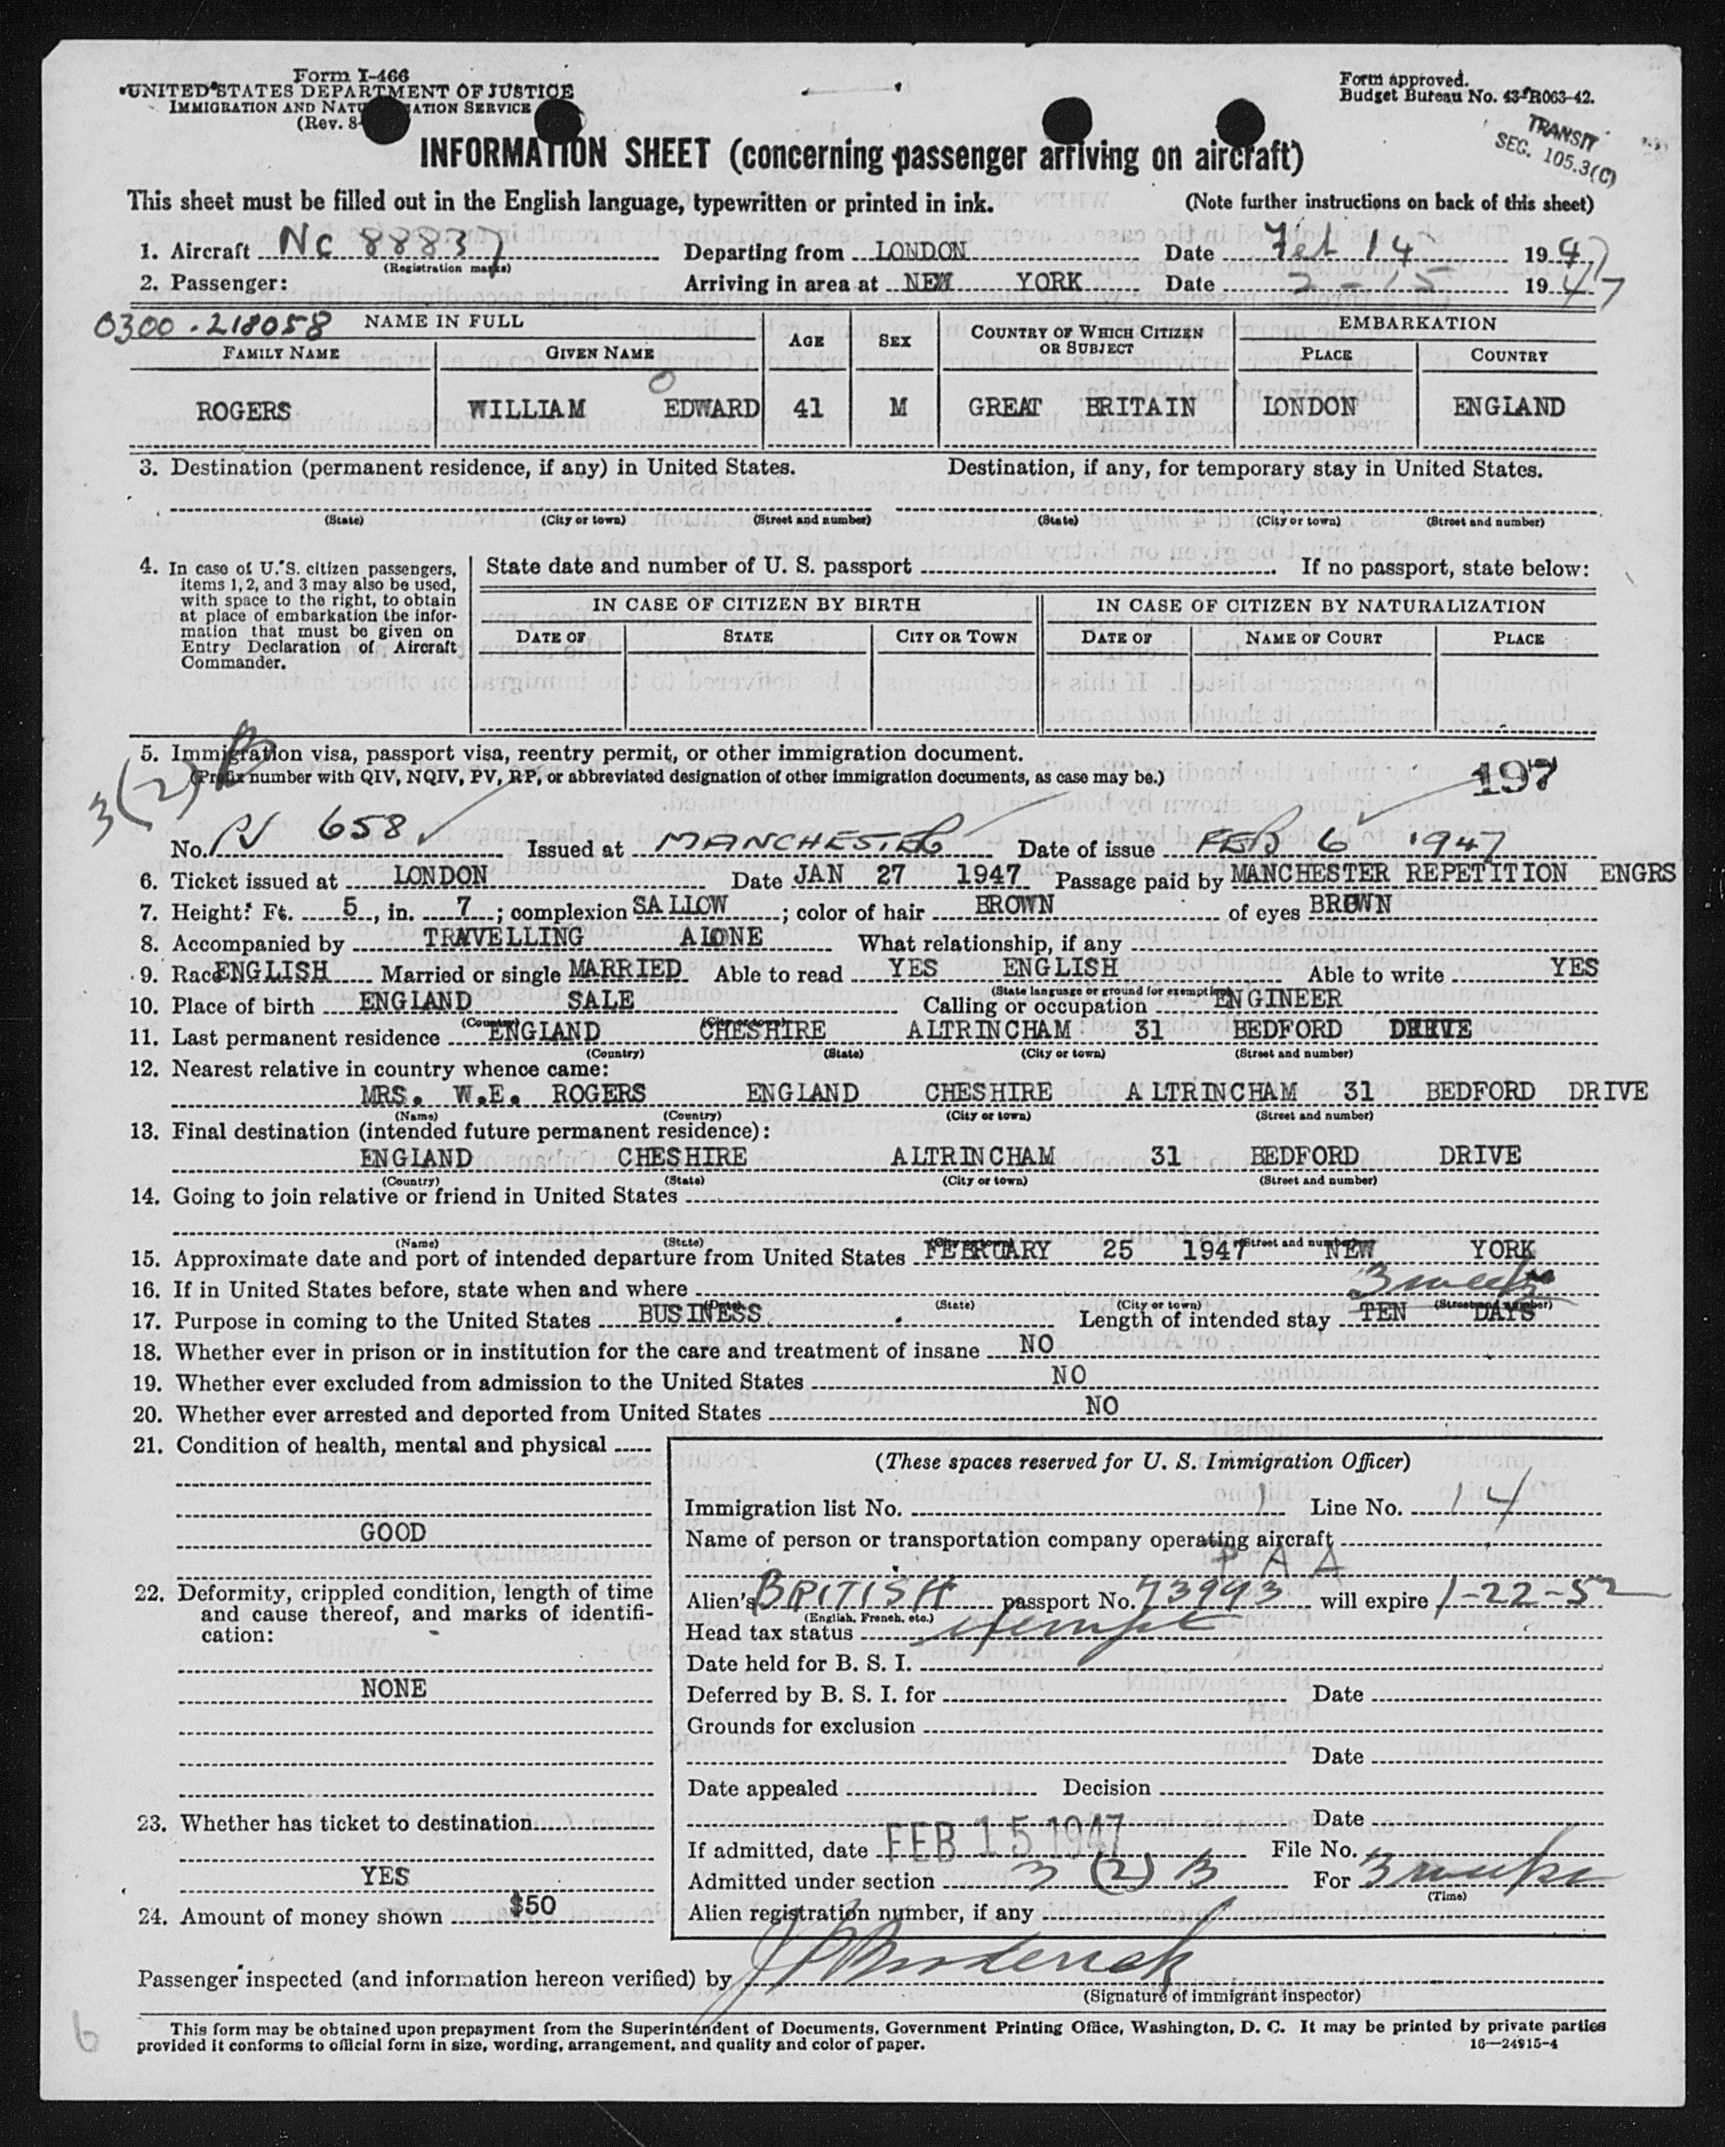 Form I-466
UNITED STATES DEPARTMENT OF JUSTICE
IMMIGRATION AND NATU ATION SERVICE
(Rev. 8-
Form approved.
Budget Bureau No. 43-R063-42.
TRANSIT
SEC. 105.3(C)
INFORMATION SHEET (concerning passenger arriving on aircraft)
This sheet must be filled out in the English language, typewritten or printed in ink. (Note further instructions on back of this sheet)
1. Aircraft NC 88837 Departing from LONDON Date Feb 14 1947
(Registration marks)
2. Passenger: Arriving in area at NEW YORK Date 2-15 1947
0300-218058 NAME IN FULL AGE SEX COUNTRY OF WHICH CITIZEN OR SUBJECT EMBARKATION
FAMILY NAME GIVEN NAME PLACE COUNTRY
O
ROGERS WILLIAM EDWARD 41 M GREAT BRITAIN LONDON ENGLAND
3. Destination (permanent residence, if any) in United States. Destination, if any, for temporary stay in United States.
(State) (City or town) (Street and number) (State) (City or town) (Street and number)
4. In case of U. S. citizen passengers, items 1, 2, and 3 may also be used, with space to the right, to obtain at place of embarkation the information that must be given on Entry Declaration of Aircraft Commander.
State date and number of U. S. passport If no passport, state below:
IN CASE OF CITIZEN BY BIRTH IN CASE OF CITIZEN BY NATURALIZATION
DATE OF STATE CITY OR TOWN DATE OF NAME OF COURT PLACE
5. Immigration visa, passport visa, reentry permit, or other immigration document.
(Prefix number with QIV, NQIV, PV, RP, or abbreviated designation of other immigration documents, as case may be.) 197
3(2)B
No. PV 658 Issued at MANCHESTER Date of issue FEB 6 1947
6. Ticket issued at LONDON Date JAN 27 1947 Passage paid by MANCHESTER REPETITION ENGRS
7. Height: Ft. 5, in. 7; complexion SALLOW; color of hair BROWN of eyes BROWN
8. Accompanied by TRAVELLING ALONE What relationship, if any
9. Race ENGLISH Married or single MARRIED Able to read YES ENGLISH Able to write YES
(State language or ground for exemption)
10. Place of birth ENGLAND SALE Calling or occupation ENGINEER
(Country) (City or town)
11. Last permanent residence ENGLAND CHESHIRE ALTRINCHAM 31 BEDFORD DRIVE
(Country) (State) (City or town) (Street and number)
12. Nearest relative in country whence came:
MRS. W.E. ROGERS ENGLAND CHESHIRE ALTRINCHAM 31 BEDFORD DRIVE
(Name) (Country) (City or town) (Street and number)
13. Final destination (intended future permanent residence):
ENGLAND CHESHIRE ALTRINCHAM 31 BEDFORD DRIVE
(Country) (State) (City or town) (Street and number)
14. Going to join relative or friend in United States
(Name) (State) (City or town) (Street and number)
15. Approximate date and port of intended departure from United States FEBRUARY 25 1947 NEW YORK
16. If in United States before, state when and where
3 weeks
(Date) (State) (City or town) (Street and number)
17. Purpose in coming to the United States BUSINESS Length of intended stay TEN DAYS
18. Whether ever in prison or in institution for the care and treatment of insane NO
19. Whether ever excluded from admission to the United States NO
20. Whether ever arrested and deported from United States NO
21. Condition of health, mental and physical
GOOD
22. Deformity, crippled condition, length of time and cause thereof, and marks of identification:
NONE
23. Whether has ticket to destination
YES
24. Amount of money shown $50
(These spaces reserved for U. S. Immigration Officer)
Immigration list No. 1 Line No. 14
Name of person or transportation company operating aircraft
P A A
Alien's BRITISH passport No. 73993 will expire 1-22-52
(English, French, etc.)
Head tax status exempt
Date held for B. S. I.
Deferred by B. S. I. for Date
Grounds for exclusion
Date
Date appealed Decision
Date
If admitted, date FEB 15 1947 File No.
Admitted under section 3 (2) B For 3 weeks
(Time)
Alien registration number, if any
Passenger inspected (and information hereon verified) by
(Signature of immigrant inspector)
6
This form may be obtained upon prepayment from the Superintendent of Documents, Government Printing Office, Washington, D. C. It may be printed by private parties
provided it conforms to official form in size, wording, arrangement, and quality and color of paper. 16—24915-4